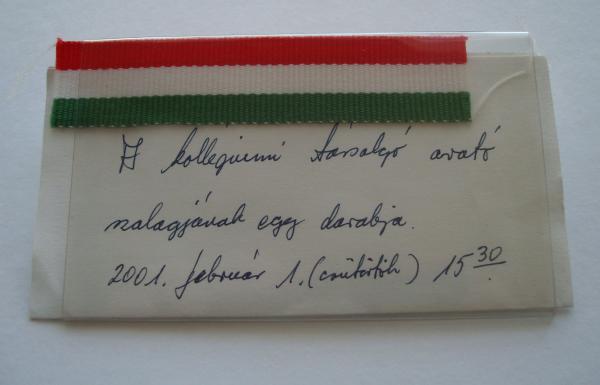 A kollégiumi társalgó avató
szalagjának egy darabja.
2001. február 1. (csütörtök) 15 30